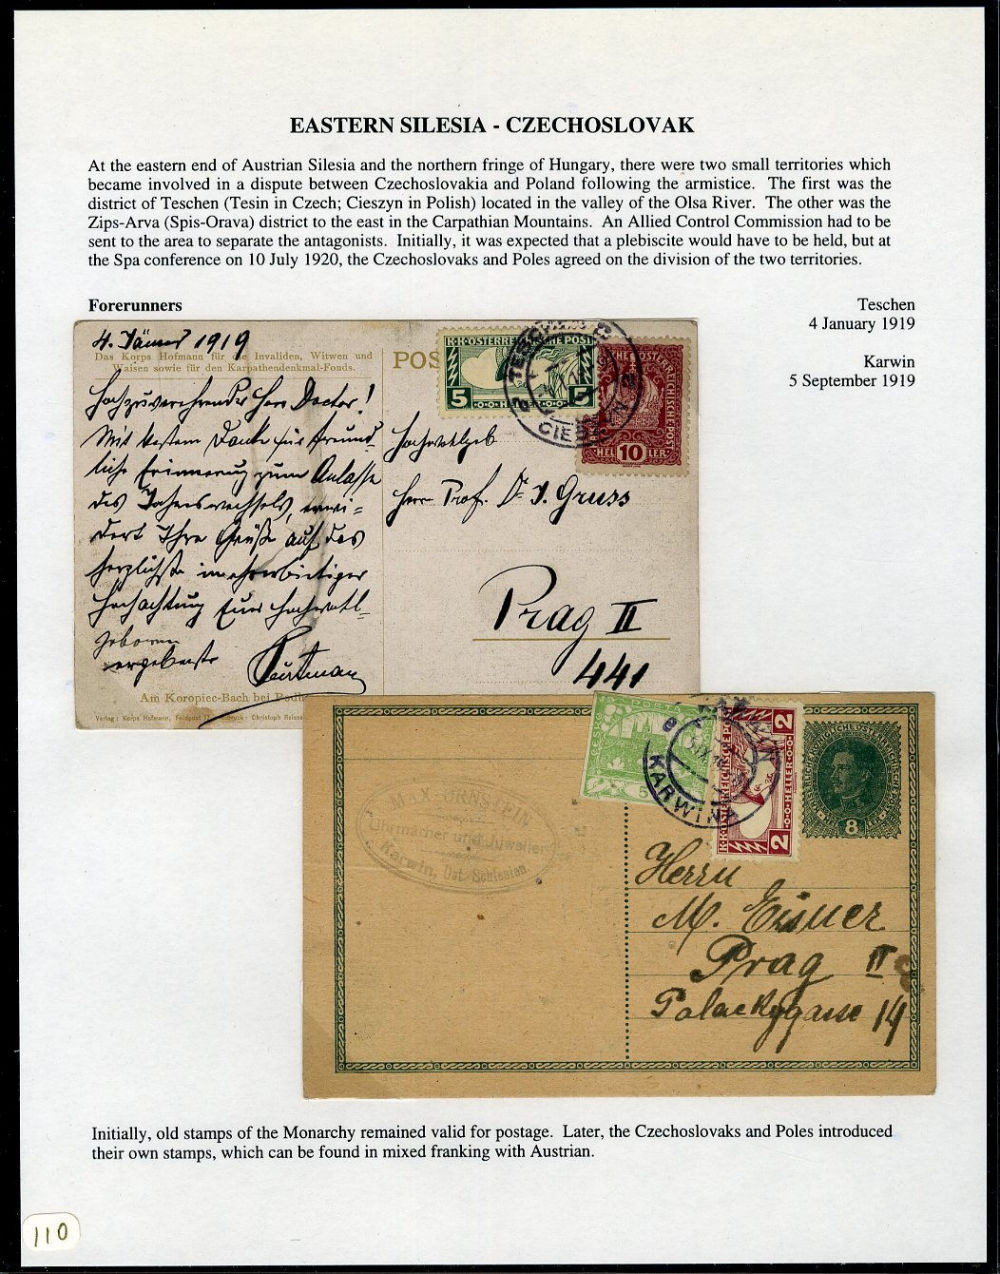 EASTERN SILESIA - CZECHOSLOVAK
At the eastern end of Austrian Silesia and the northern fringe of Hungary, there were two small territories which
became involved in a dispute between Czechoslovakia and Poland following the armistice. The first was the
district of Teschen (Tesin in Czech; Cieszyn in Polish) located in the valley of the Olsa River. The other was the
Zips-Arva (Spis-Orava) district to the east in the Carpathian Mountains. An Allied Control Commission had to be
sent to the area to separate the antagonists. Initially, it was expected that a plebiscite would have to be held, but at
the Spa conference on 10 July 1920, the Czechoslovaks and Poles agreed on the division of the two territories.
Forerunners
Teschen
4 January 1919
Karwin
5 September 1919
4. Jänner 1919
Das Korps Hofmann für die Invaliden, Witwen und
Waisen sowie für den Karpathendenkmal-Fonds.
POS
5 5
10
HELLER
Hochzuverehrender Herr Doctor!
Mit bestem Dank für freund-
liche Erinnerung zum Anlasse
des Jahreswechsels, erwi-
dert Ihre Grüße auf das
herzlichste in ehrerbietiger
Hochachtung Euer Hochwohl-
geboren
ergebenste
Hochwohlgeb
Herr Prof. Dr. J. Gruss
Prag II
441
Am Koropiec-Bach bei
Verlag: Korps Hofmann, Feldpost
KARWIN
KARWINA
2 HELLER 2
8
Uhrmacher und Juwelier
Karwin, Öst. Schlesien
Herrn
M. Eisner
Prag II
Palackygasse 14
Initially, old stamps of the Monarchy remained valid for postage. Later, the Czechoslovaks and Poles introduced
their own stamps, which can be found in mixed franking with Austrian.
110